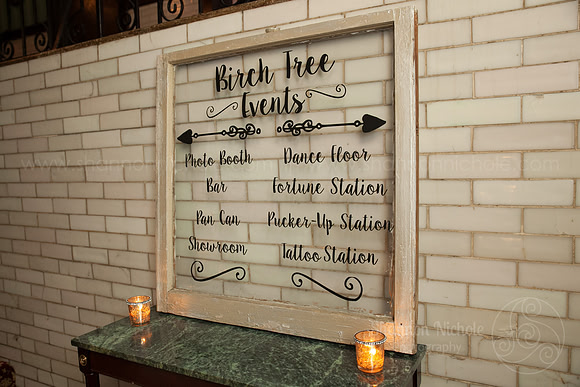 Birch Tree
Events
Photo Booth Dance Floor
Bar Fortune Station
Pan Can Pucker-Up Station
Showroom Tattoo Station
Nichole